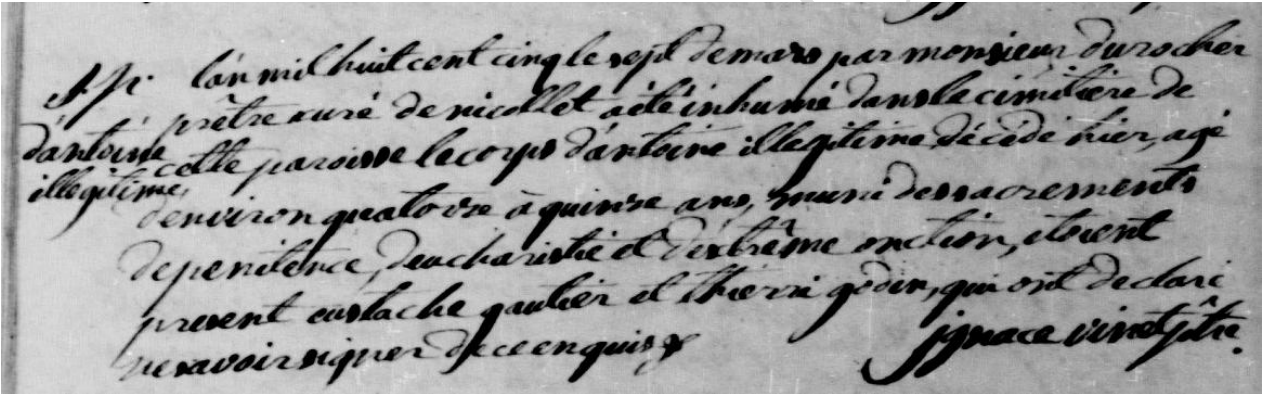 Sp.
d'antoine
illegitime
l'an mil huit cent cinq le sept de mars par monsieur durocher
prêtre curé de nicollet a été inhumé dans le cimitière de
cette paroisse le corps d'antoine illegitime décédé hier, agé
denviron quatorze à quinze ans, muni des sacrements
de penitence, deucharistie et d'extrême onction, étoient
present eustache gautier et thierri godin, qui ont declaré
ne savoir signer de ce enquis
ignace vinet ptre.